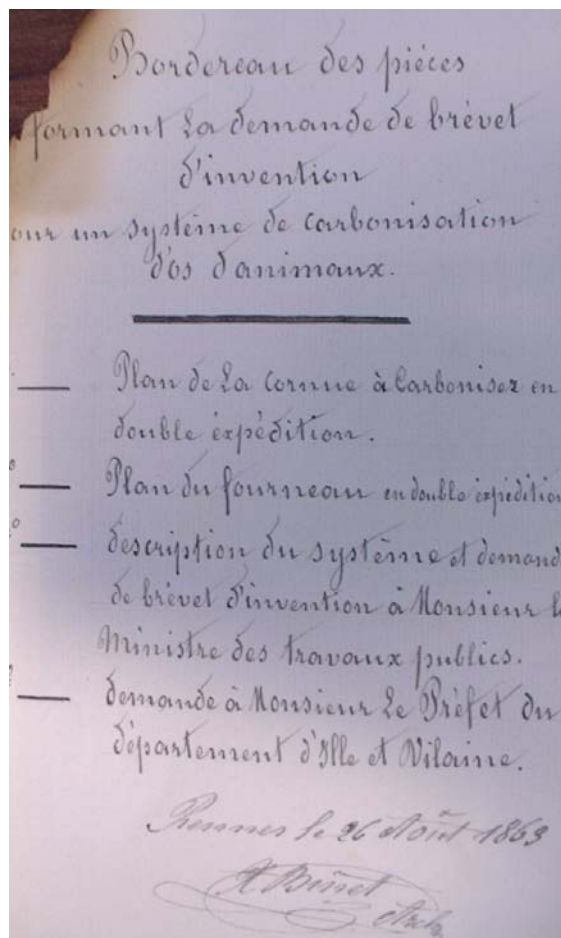 Bordereau des pièces
formant La demande de brévet
d'invention
our un système de Carbonisation
d'os d'animaux.
Plan de La Cornue à Carbonisez en
double éxpédition.
Plan du fourneau en double éxpédition
description du système et demand
de brévet d'invention à Monsieur l
Ministre des travaux publics.
demande à Monsieur Le Préfet du
département d'Ille et Vilaine.
Rennes le 26 Août 1863
Binet
Arch